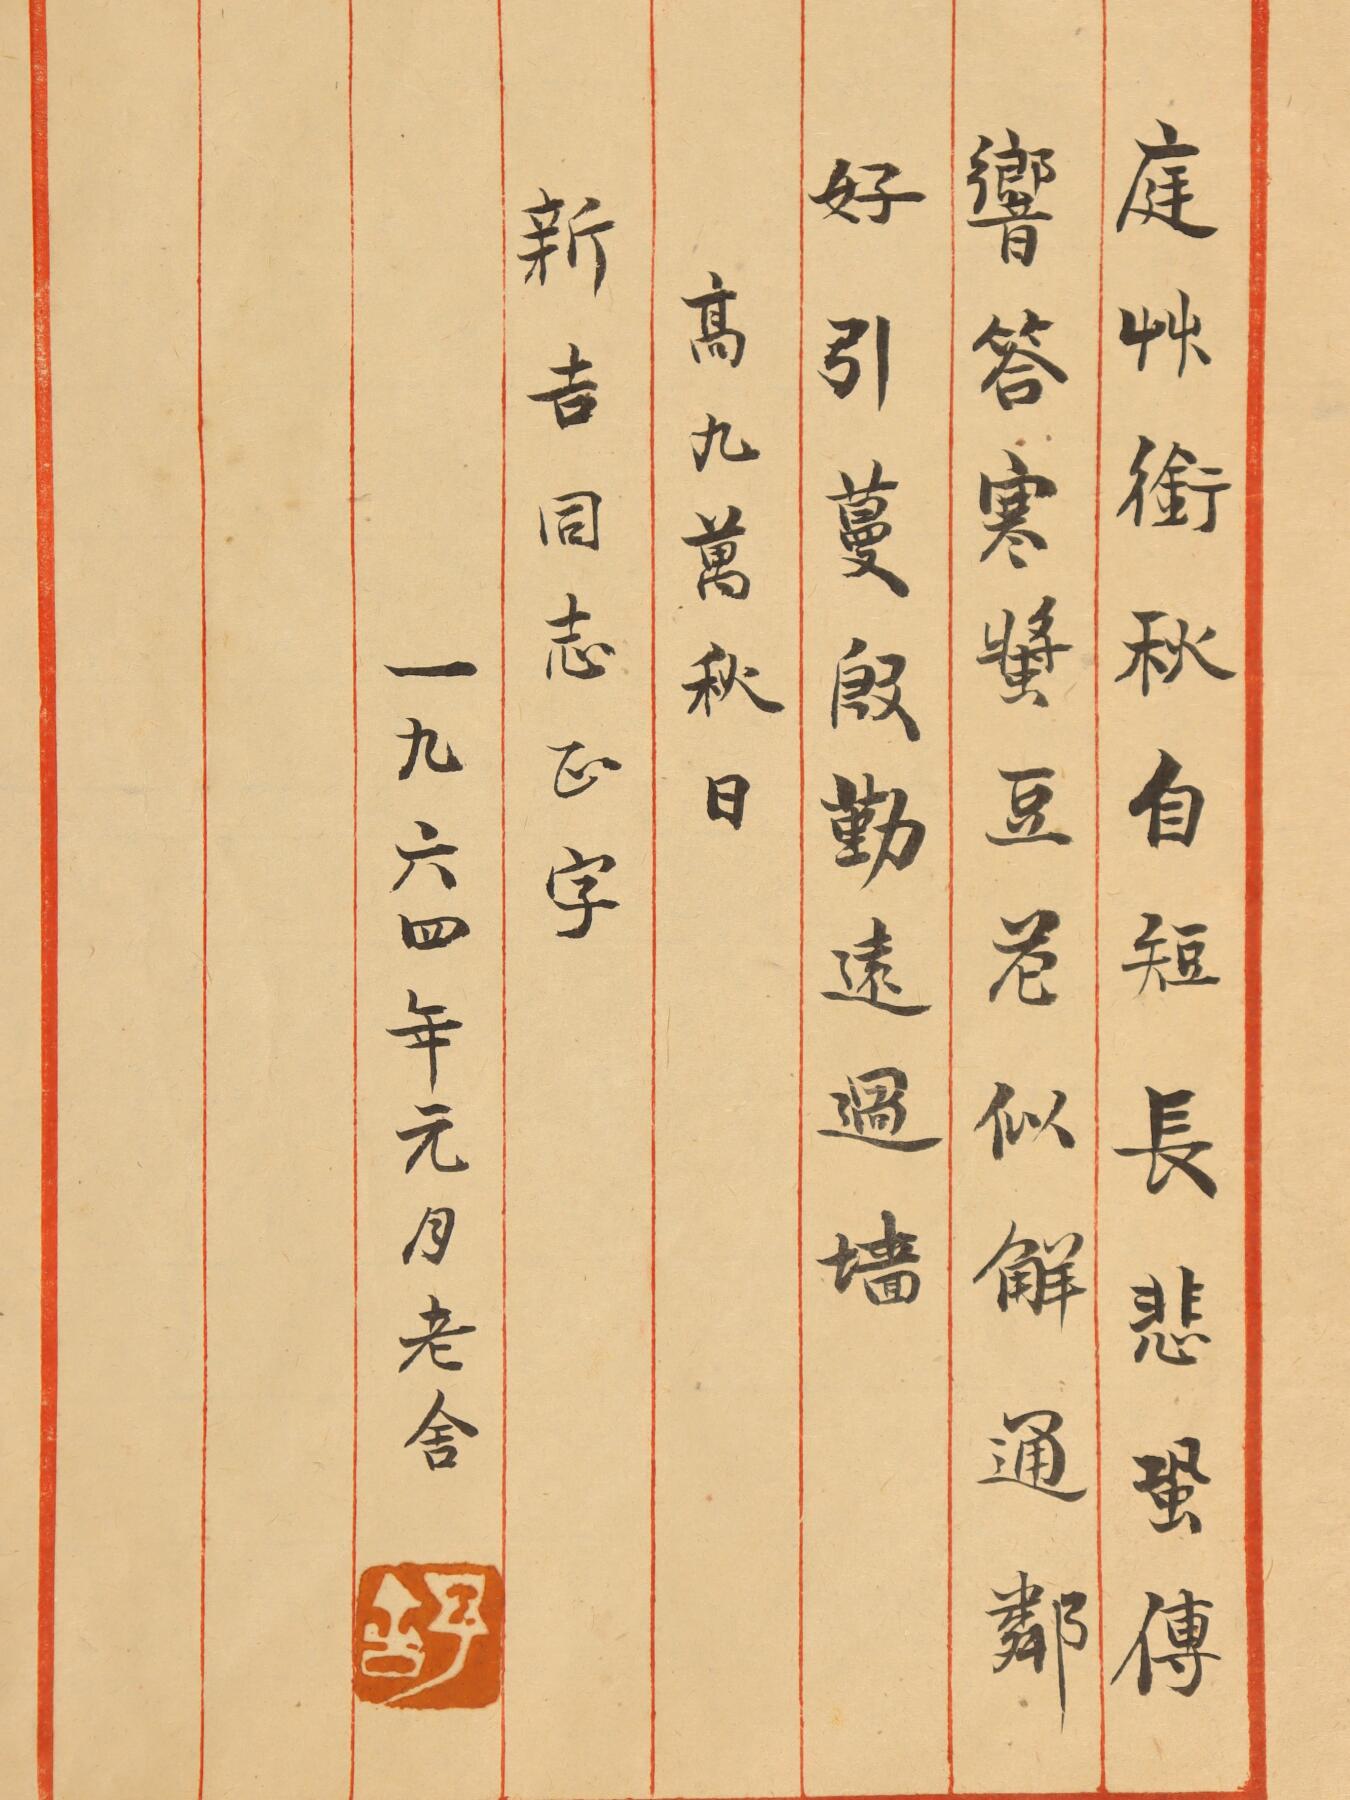 庭艸銜秋自短長悲蛩傳
響答寒螿豆花似解通鄰
好引蔓殷勤遠過墻
高九萬秋日
新吉同志正字
一九六四年元月老舍
舒